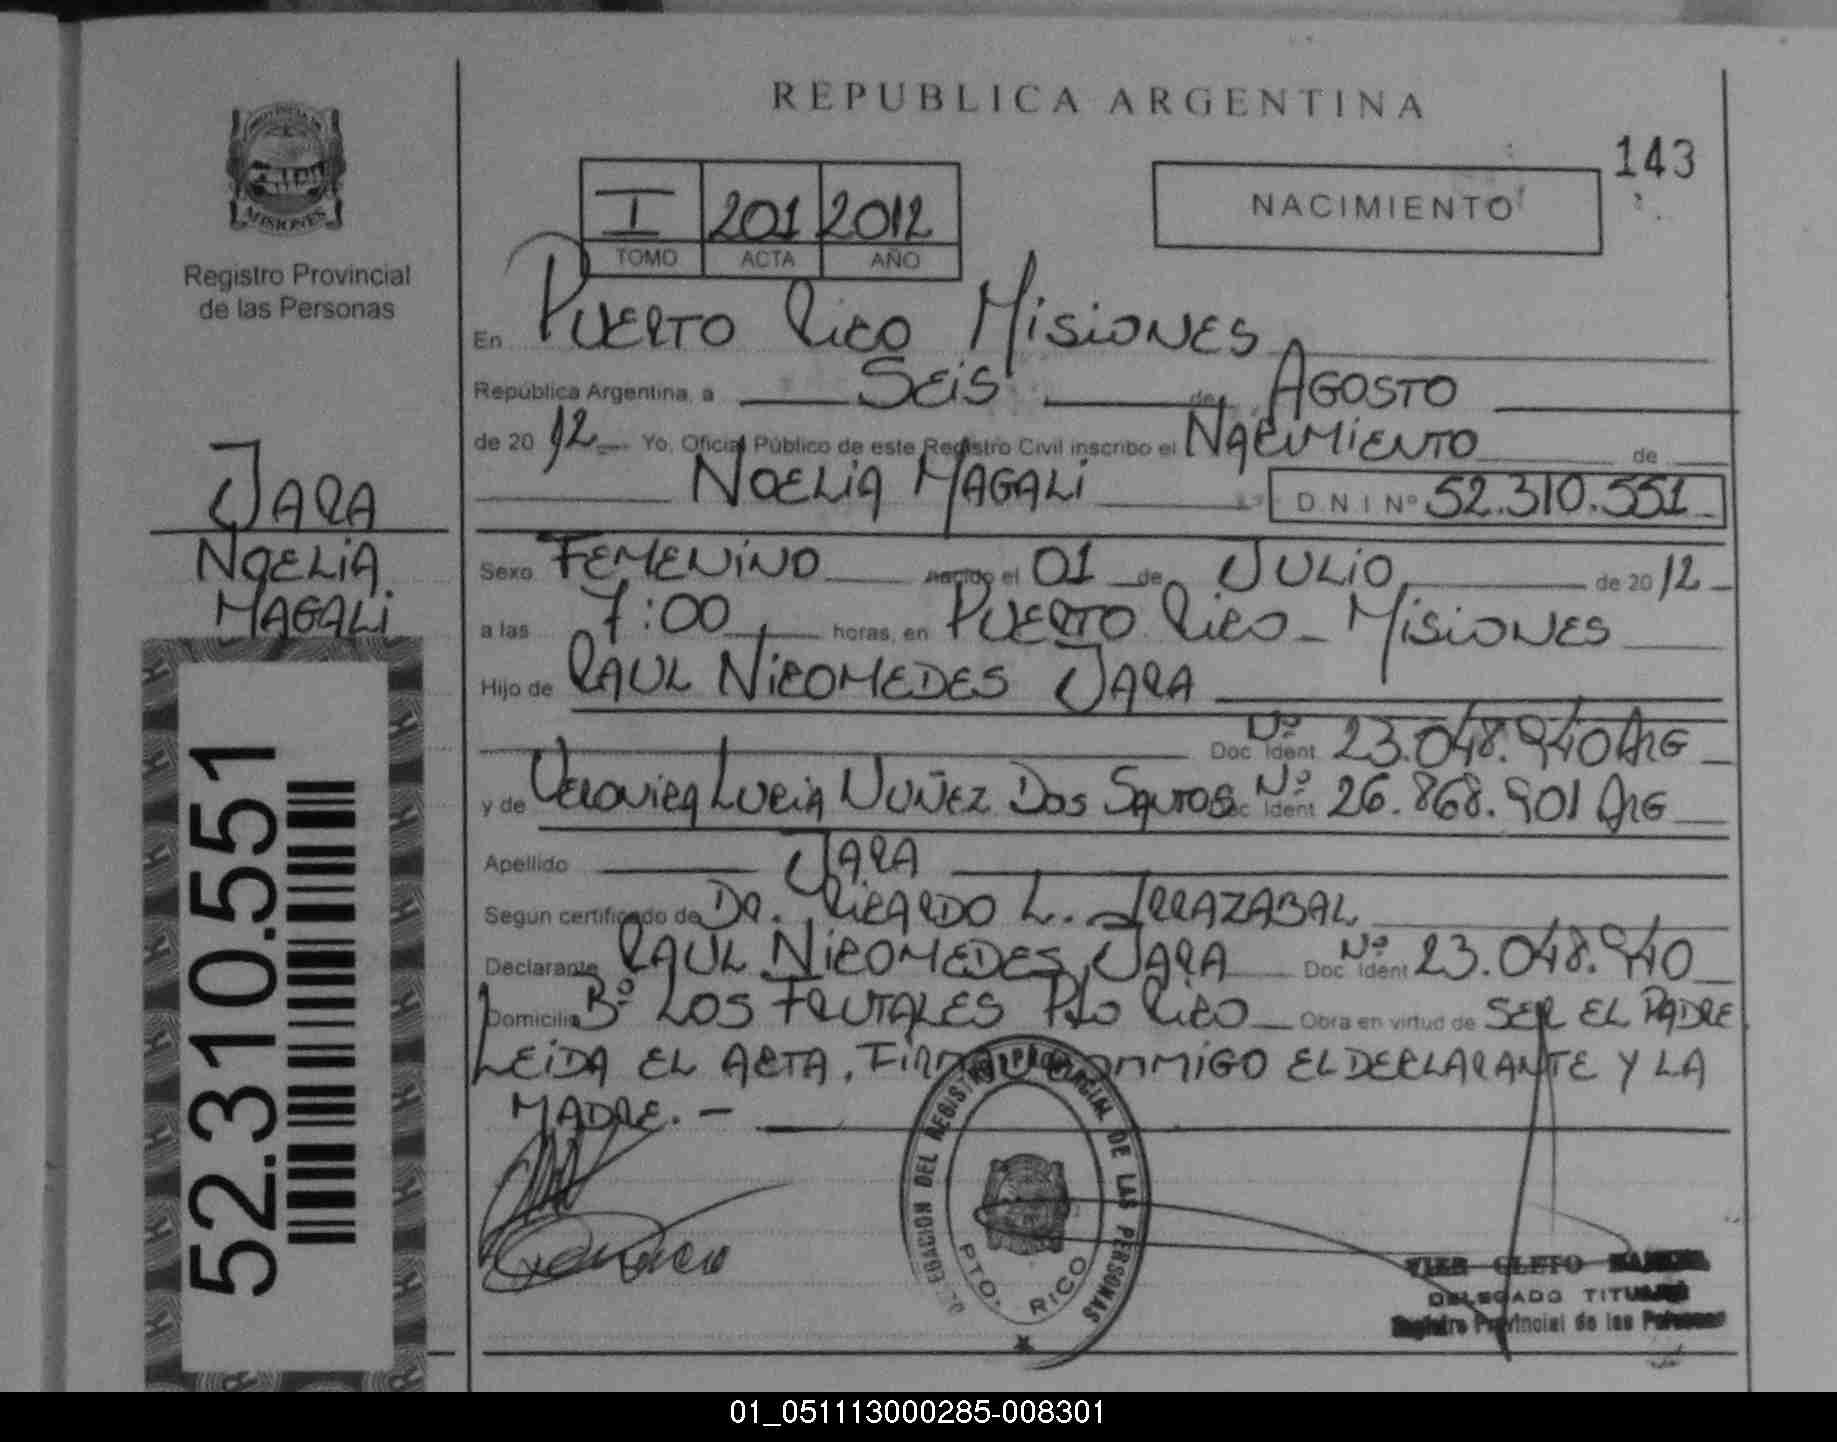 REPUBLICA ARGENTINA
143
PROVINCIA DE
MISIONES
Registro Provincial
de las Personas
I 201 2012
TOMO ACTA AÑO
NACIMIENTO
En PUERTO RICO MISIONES
República Argentina, a SEIS de AGOSTO
de 2012 Yo, Oficial Público de este Registro Civil inscribo el NACIMIENTO de
NOELIA MAGALI D.N.I Nº 52.310.551
JARA
NOELIA
MAGALI
Sexo FEMENINO nacido el 01 de JULIO de 2012
a las 7:00 horas, en PUERTO RICO - MISIONES
Hijo de RAUL NICOMEDES JARA
Doc. Ident. Nº 23.048.940 ARG
y de VERONICA LUCIA NUÑEZ DOS SANTOS Doc. Ident. Nº 26.868.901 ARG
Apellido JARA
Según certificado de DR. RICARDO L. IRRAZABAL
Declarante RAUL NICOMEDES JARA Doc. Ident. Nº 23.048.940
Domicilio Bº LOS FRUTALES Pto RICO Obra en virtud de SER EL PADRE
LEIDA EL ACTA, FIRMA CONMIGO EL DECLARANTE Y LA
MADRE. -
52.310.551
DELEGACION DEL REGISTRO PROVINCIAL DE LAS PERSONAS
PTO. RICO
CLETO
DELEGADO TITULAR
Registro Provincial de las Personas
01_051113000285-008301